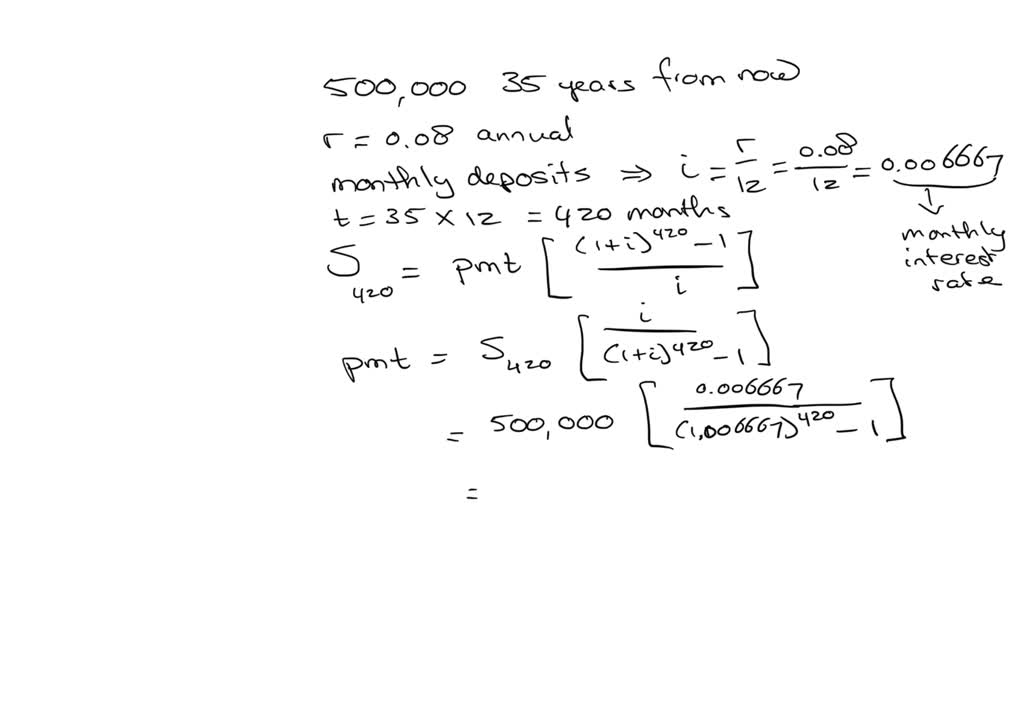 500,000 35 years from now
r = 0.08 annual
monthly deposits ⇒ i = r/12 = 0.08/12 = 0.006667
t = 35 × 12 = 420 months
↓ monthly interest rate
S_420 = pmt [ ((1+i)^420 - 1) / i ]
pmt = S_420 [ i / ((1+i)^420 - 1) ]
= 500,000 [ 0.006667 / ((1,006667)^420 - 1) ]
=